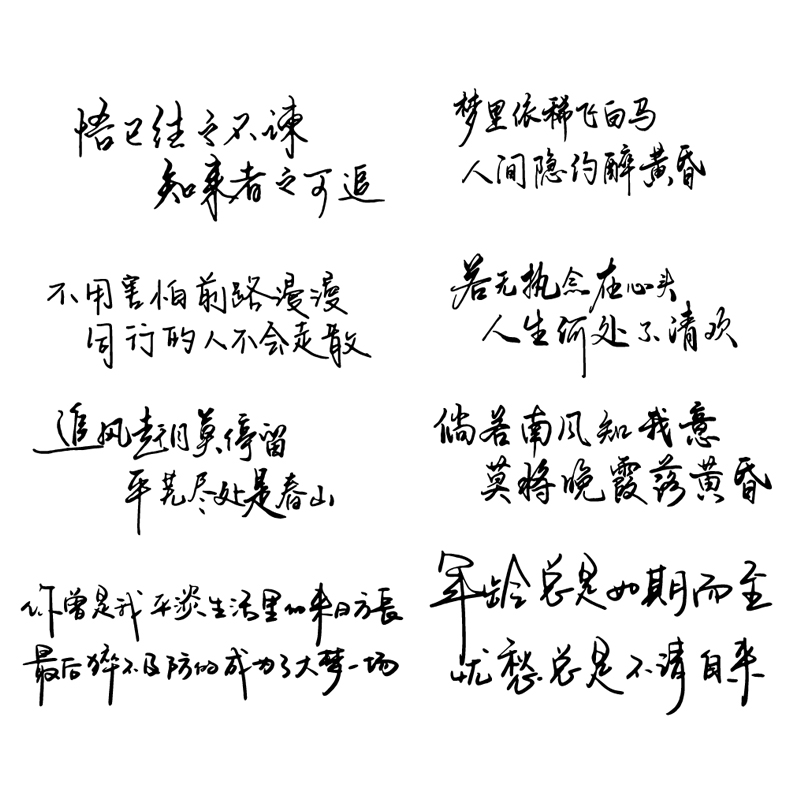 悟已往之不谏
知来者之可追
梦里依稀飞白马
人间隐约醉黄昏
不用害怕前路漫漫
同行的人不会走散
若无执念在心头
人生何处不清欢
追风赶月莫停留
平芜尽处是春山
倘若南风知我意
莫将晚霞落黄昏
你曾是我平淡生活里的来日方長
最后猝不及防的成为了大梦一场
年龄总是如期而至
忧愁总是不请自来